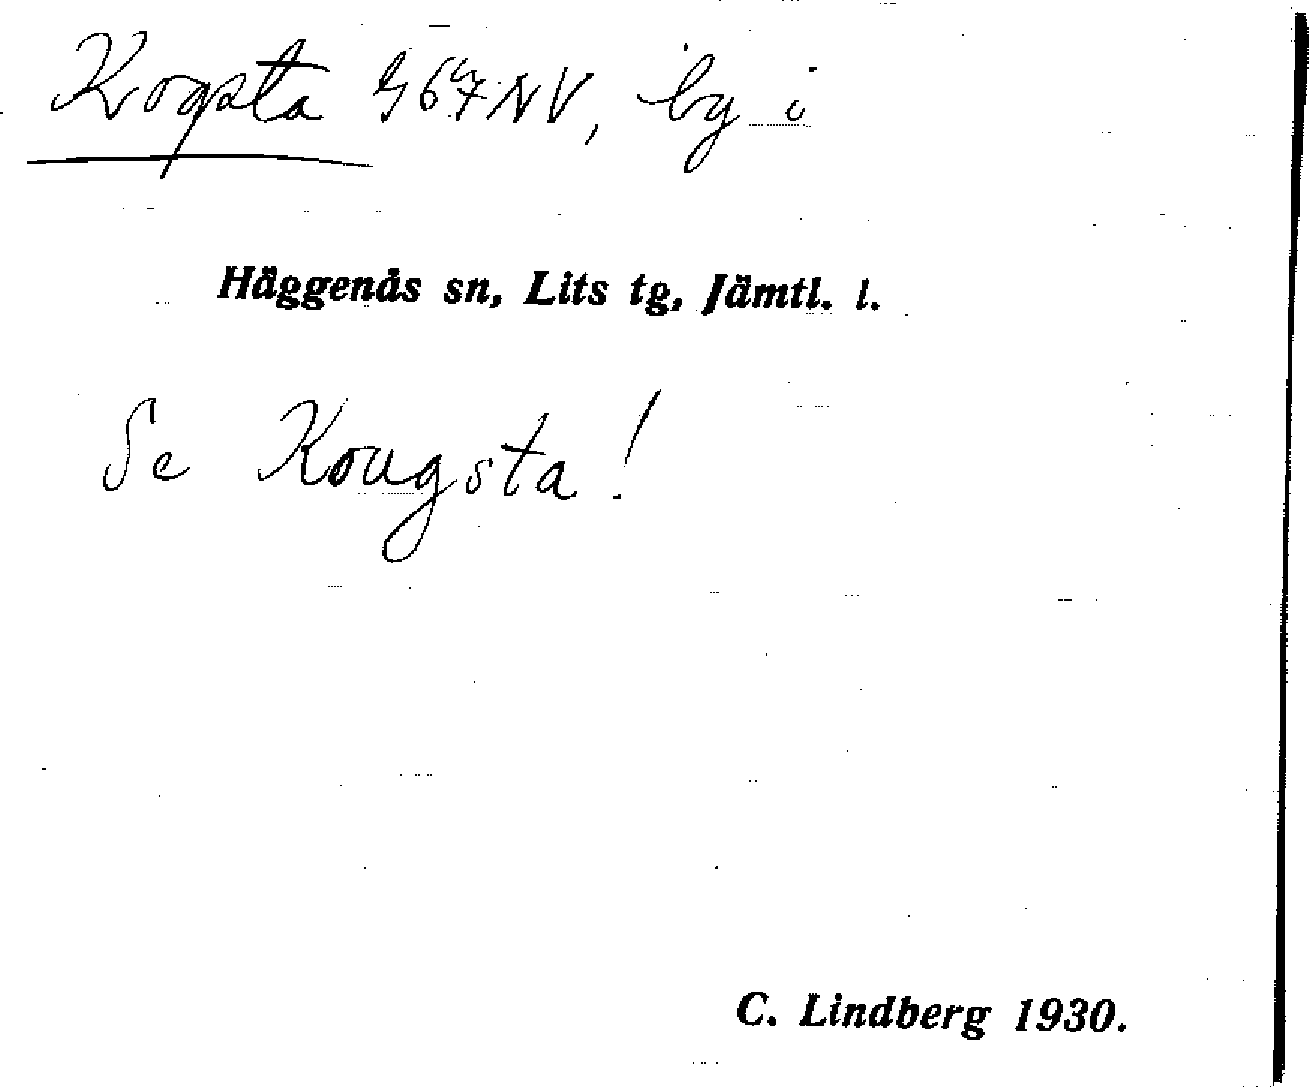 Kogsta G67NV, by i
Häggenås sn, Lits tg, Jämtl. l.
Se Kougsta!
C. Lindberg 1930.